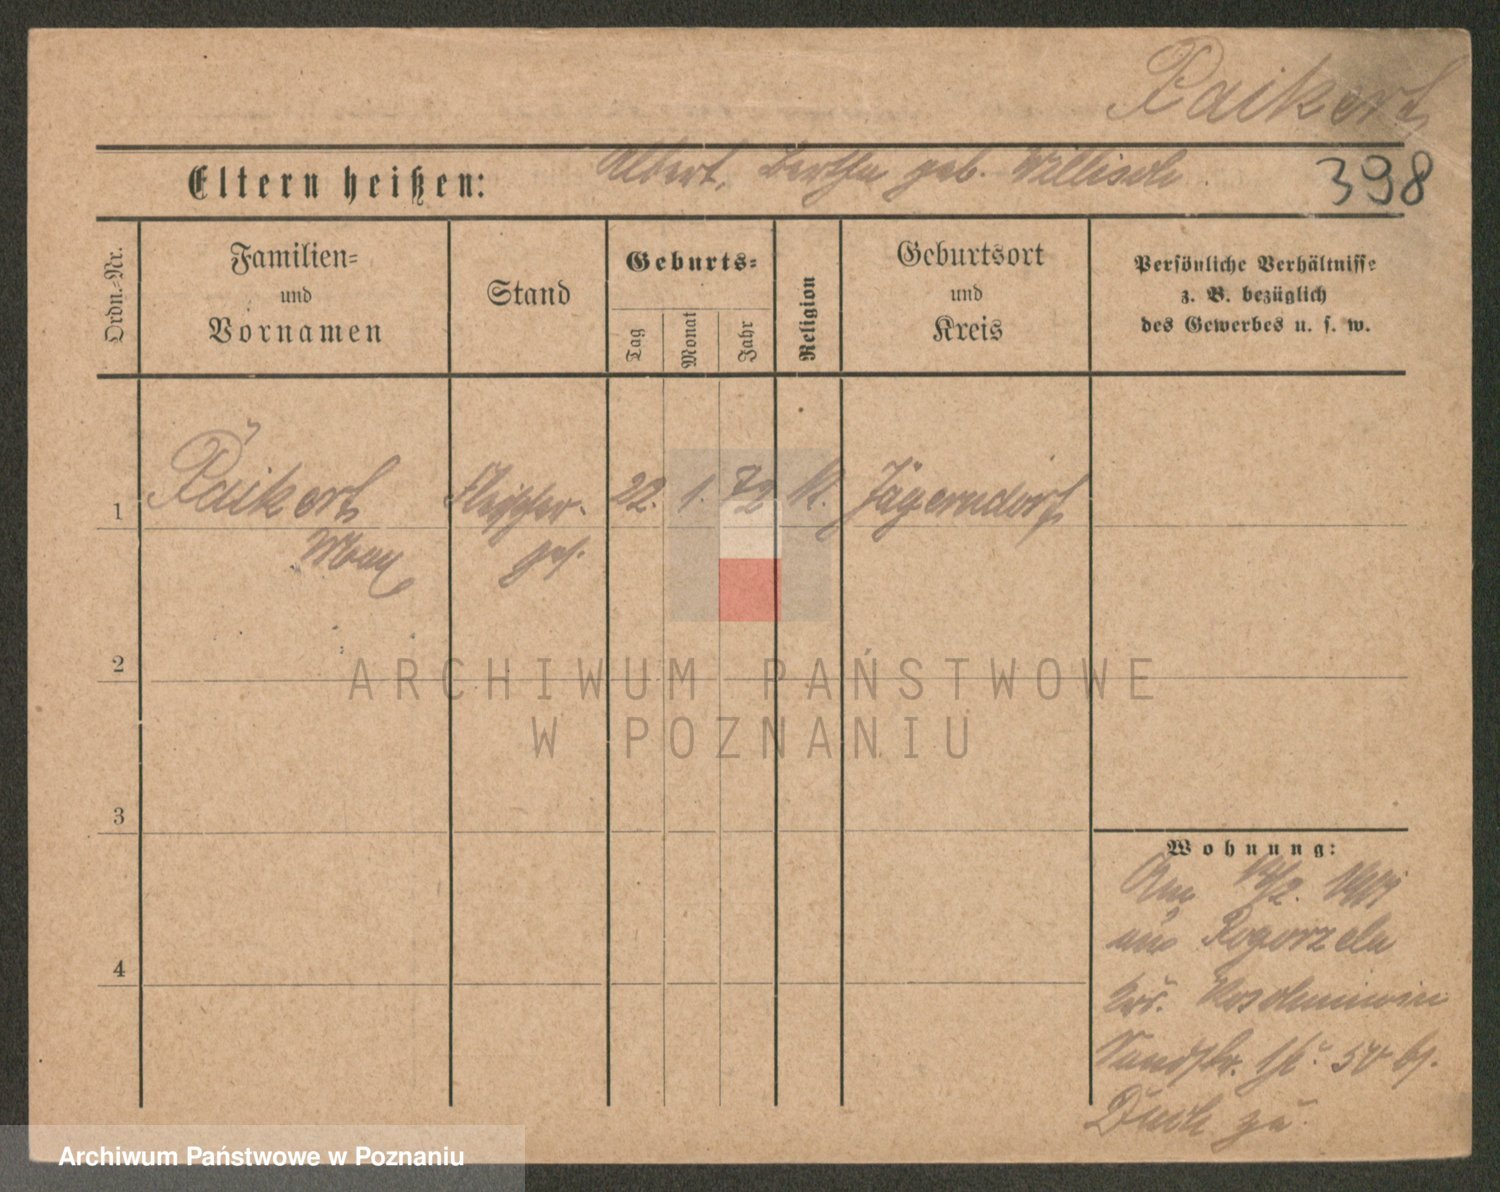 Paikert
Eltern heißen: Albert, Bertha geb. Willisch
398
Ordn.-Nr.
Familien-
und
Vornamen
Stand
Geburts-
Tag
Monat
Jahr
Religion
Geburtsort
und
Kreis
Persönliche Verhältnisse
z. B. bezüglich
des Gewerbes u. s. w.
1 Paikert Fleischer- 22. 1. 72 K. Jägerndorf
Max ges.
2
3
4
Wohnung:
aus Pogorzela
Krs. Koschmin
zu
ARCHIWUM PAŃSTWOWE
W POZNANIU
Archiwum Państwowe w Poznaniu